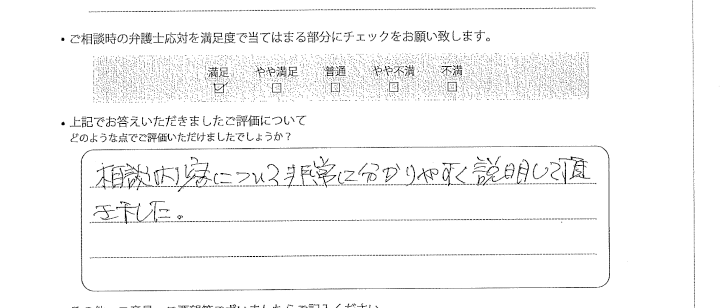 ・ご相談時の弁護士応対を満足度で当てはまる部分にチェックをお願い致します。
満足 やや満足 普通 やや不満 不満
・上記でお答えいただきましたご評価について
どのような点でご評価いただけましたでしょうか？
相談内容について非常に分かりやすく説明して頂
きました。